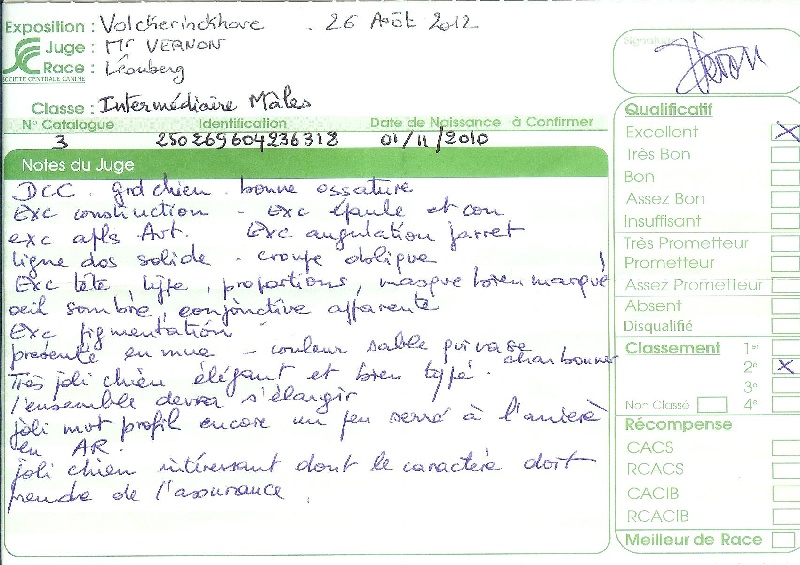 Exposition : Volckerinckhove . 26 Août 2012
Juge : Mr VERNON
Race : Léonberg
SOCIÉTÉ CENTRALE CANINE
Classe : Intermédiaire Mâles
N° Catalogue Identification Date de Naissance à Confirmer
3 250269604236318 01/11/2010
Notes du Juge
DCC . grd chien . bonne ossature
Exc construction - Exc épaule et cou
exc apls Avt. Exc angulation jarret
ligne dos solide - croupe oblique
Exc tête, type, proportions, masque bien marqué
oeil sombre, conjonctive apparente
Exc pigmentation
présenté en mue - couleur sable
charbonner
Très joli chien élégant et bien typé.
l'ensemble devra s'élargir
joli mvt profil encore un peu serré à l'arrière
en AR.
joli chien intéressant dont le caractère doit
prendre de l'assurance.
Signature
Qualificatif
Excellent X
Très Bon
Bon
Assez Bon
Insuffisant
Très Prometteur
Prometteur
Assez Prometteur
Absent
Disqualifié
Classement 1er
2e X
3e
Non Classé 4e
Récompense
CACS
RCACS
CACIB
RCACIB
Meilleur de Race